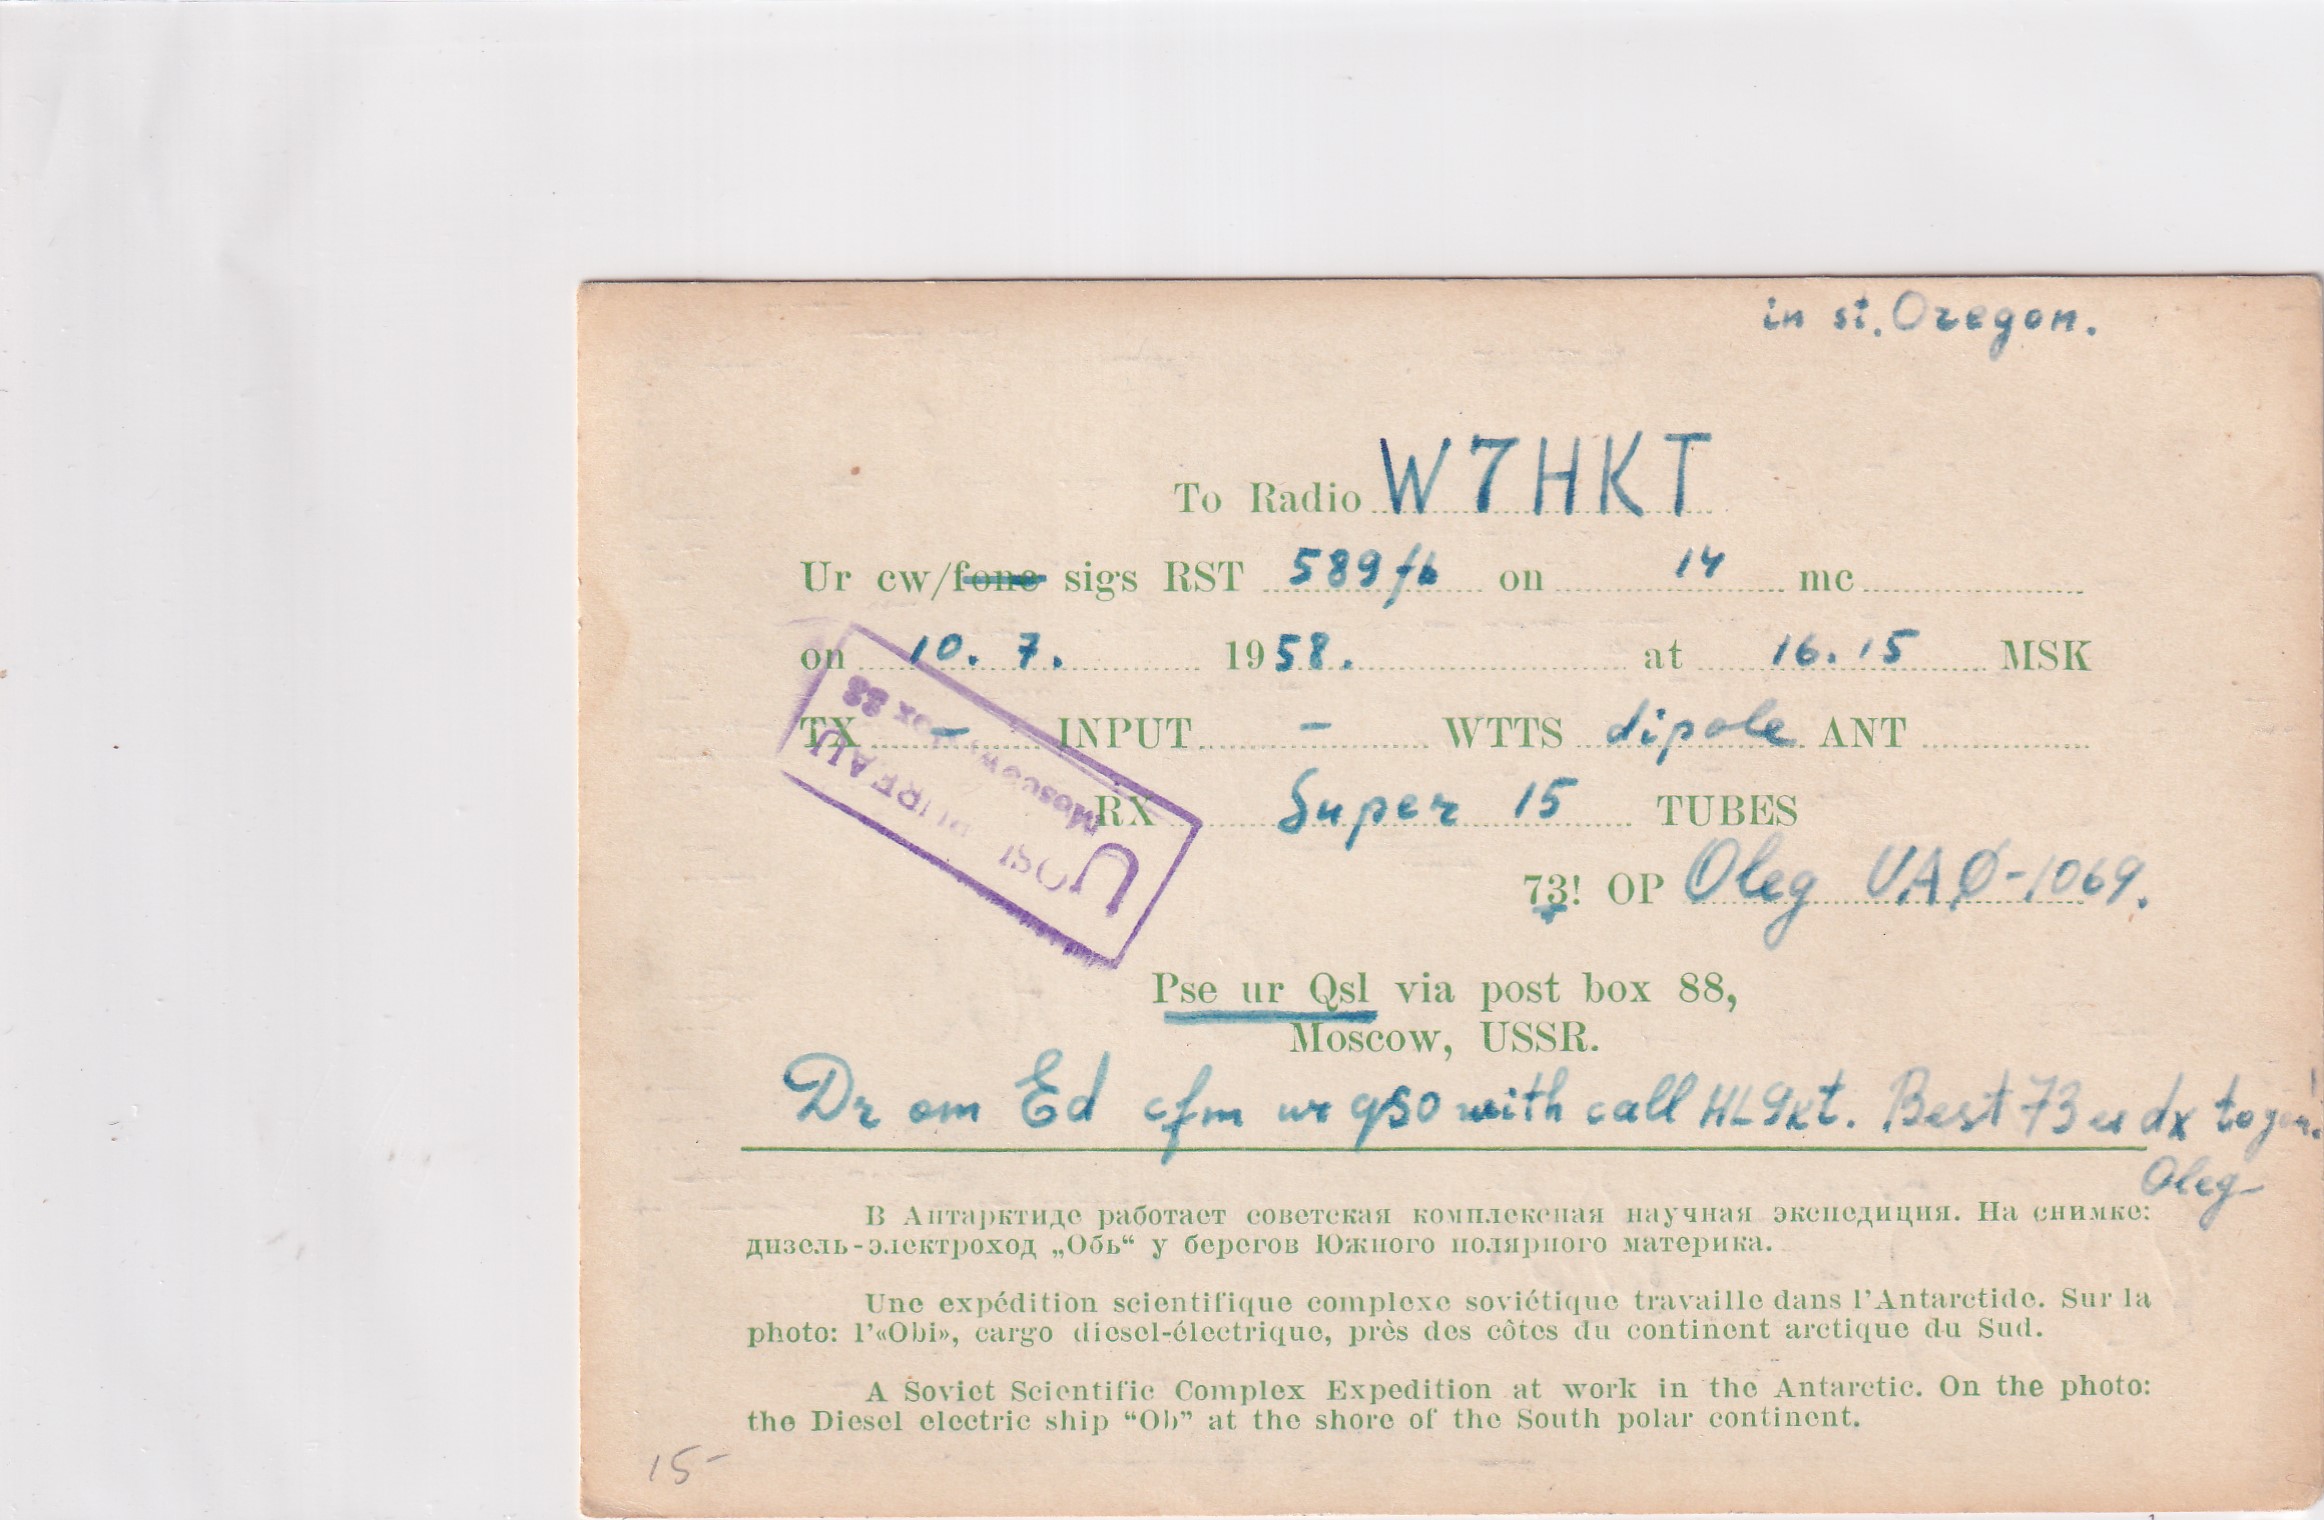 in st. Oregon.
To Radio W7HKT
Ur cw/fone sigs RST 589 fb on 14 mc
on 10. 7. 1958. at 16.15 MSK
TX - INPUT - WTTS dipole ANT
RX Super 15 TUBES
73! OP Oleg UAØ-1069.
U QSL BUREAU
Moscow Box 88
Pse ur Qsl via post box 88,
Moscow, USSR.
Dr om Ed cfm ur qso with call HL9kt. Best 73 es dx to you!
Oleg
В Антарктиде работает советская комплексная научная экспедиция. На снимке:
дизель-электроход „Обь“ у берегов Южного полярного материка.
Une expédition scientifique complexe soviétique travaille dans l'Antarctide. Sur la
photo: l'«Obi», cargo diesel-électrique, près des côtes du continent arctique du Sud.
A Soviet Scientific Complex Expedition at work in the Antarctic. On the photo:
the Diesel electric ship “Ob” at the shore of the South polar continent.
15-